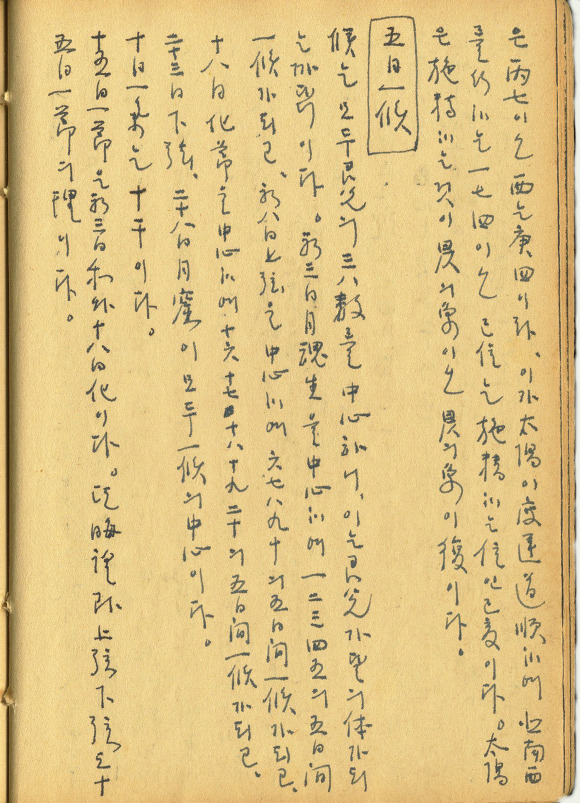 은丙七이오 西는庚四이라、이가太陽이度運道順하여 北南西
를行하는 一七四이오 己位는 施精하는 位인己亥이다。太陽
은施精하는것이 巽의象이오 巽의象이復이다。
五日一候
候는모두艮兌의三八數를 中心하니、이는艮兌가 의体가되
는까닭이다。初三日月魂生을中心하여 一二三四五의五日間
一候가되고、初八日上弦을 中心하여 六七八九十의五日間一候가되고、
十八日化節을中心하여十六十七十八十九二十의五日間一候가되고、
二十三日下弦、二十八日月窟이모두一候의中心이다。
十日一氣는十干이다。
十五日一節은初三日和와十八日化이다。또晦 上弦下弦도十
五日一節의理이다。